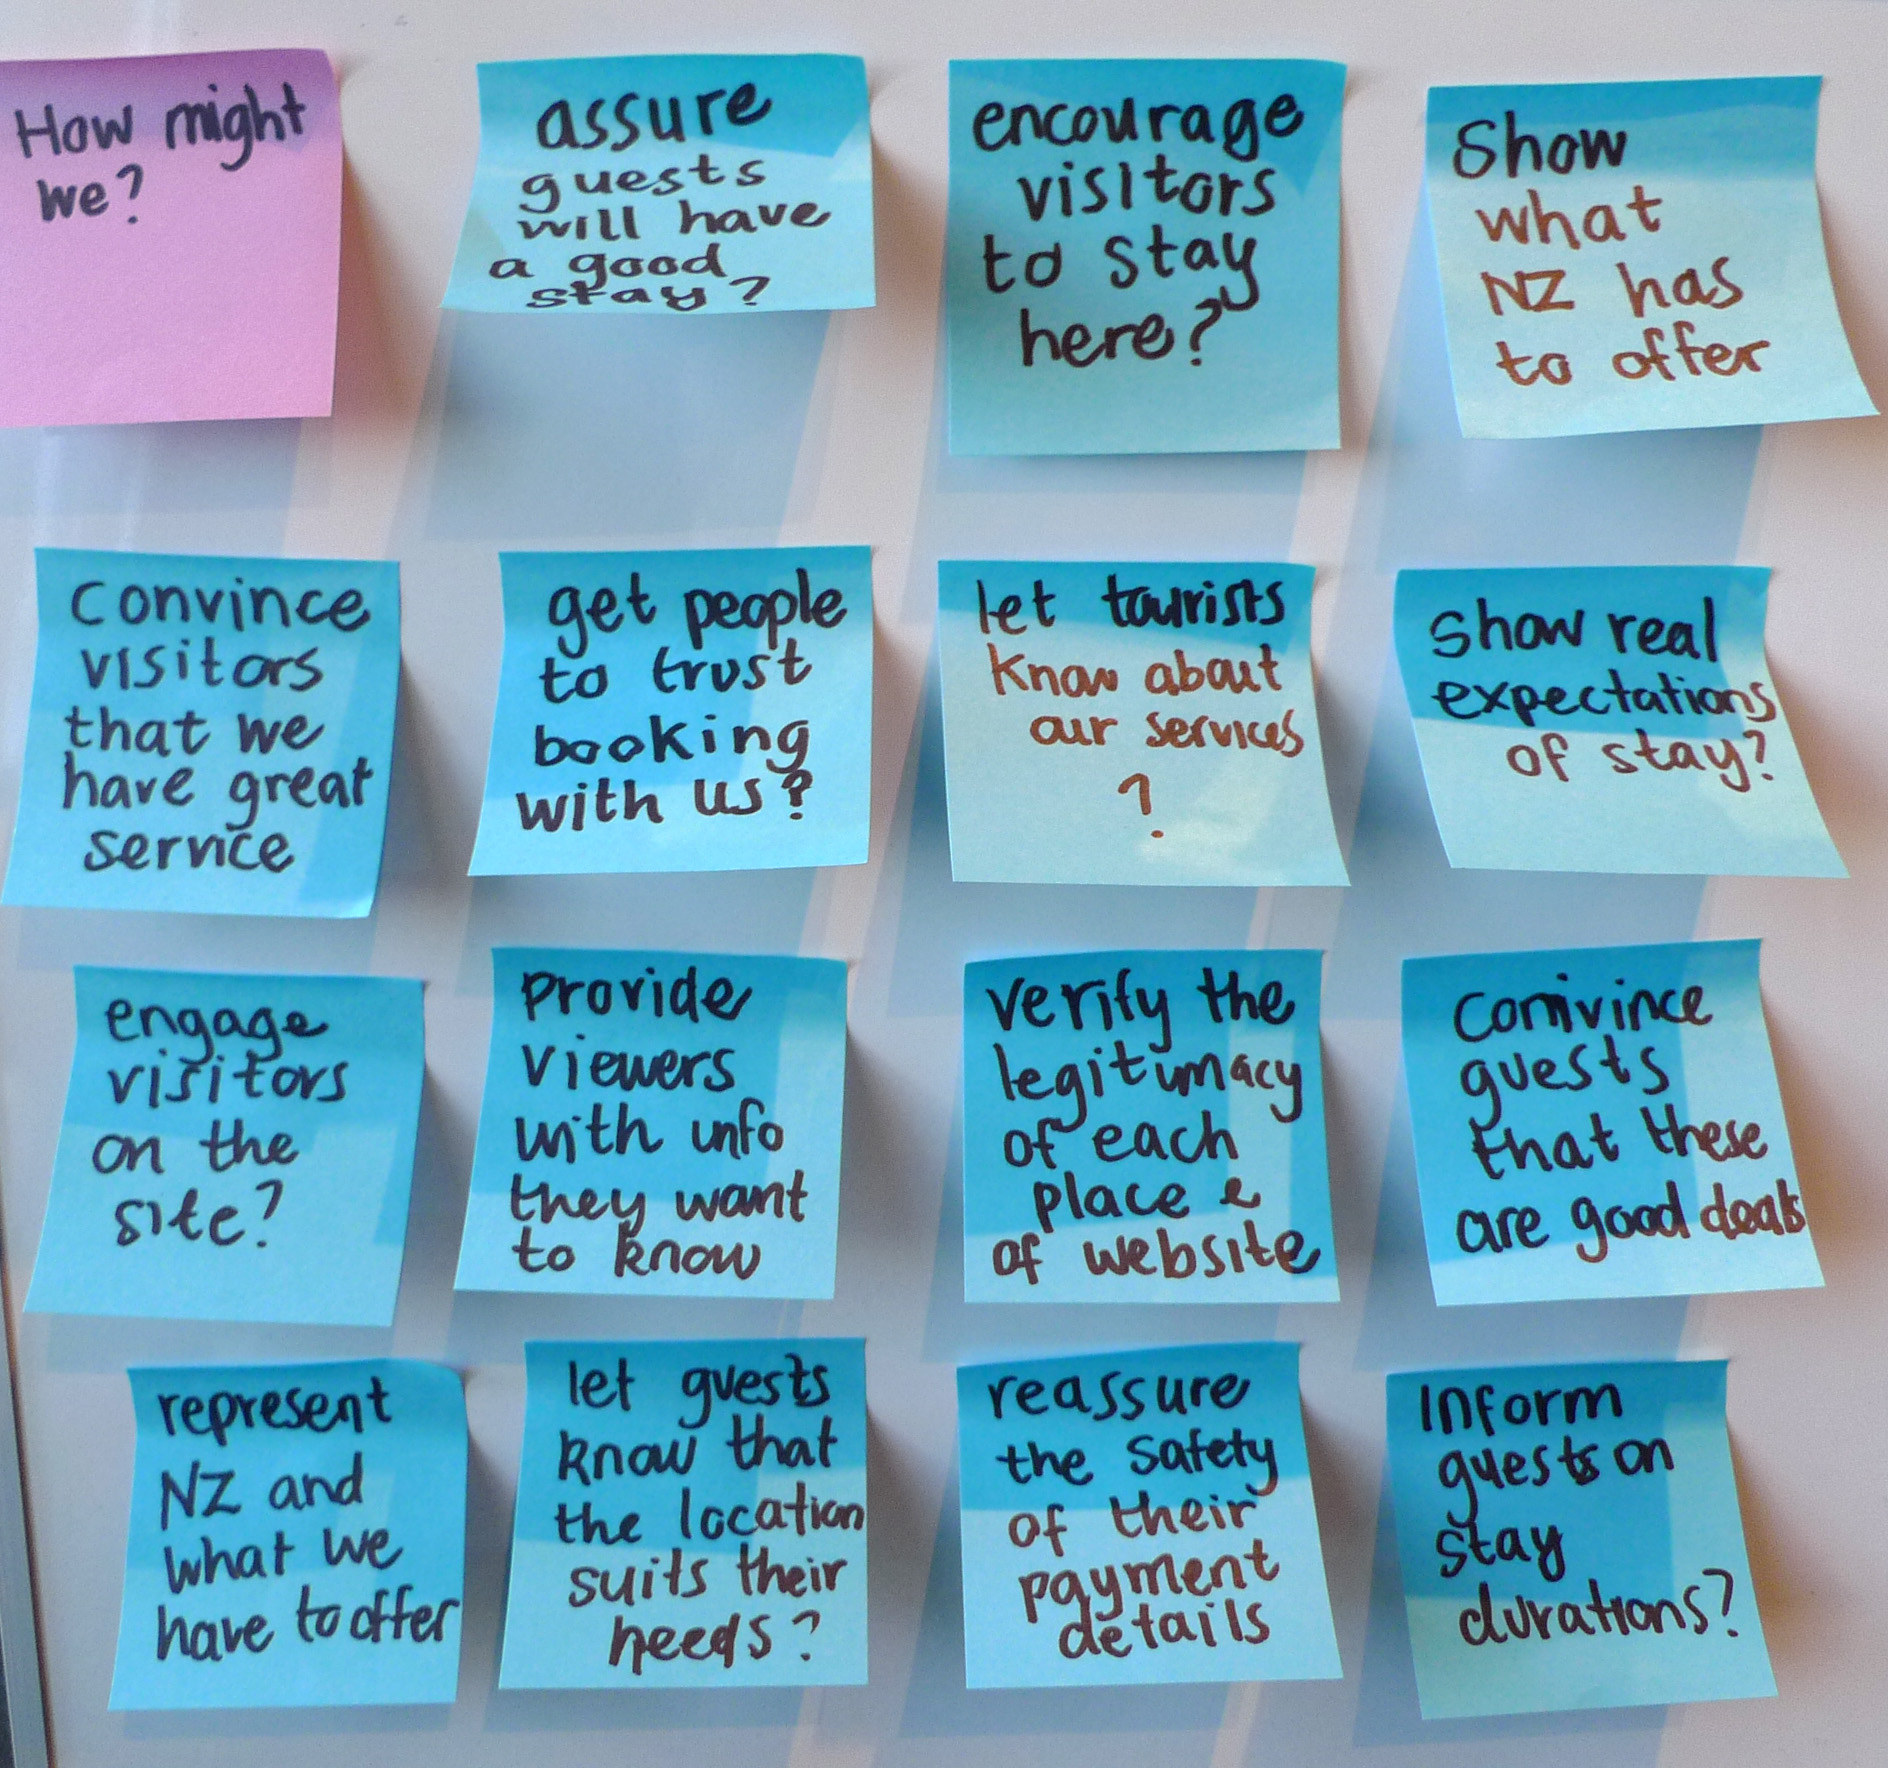 How might
we?
assure
guests
will have
a good
stay?
encourage
visitors
to stay
here?
Show
what
NZ has
to offer
convince
visitors
that we
have great
service
get people
to trust
booking
with us?
let tourists
know about
our services
?
Show real
expectations
of stay?
engage
visitors
on the
site?
provide
viewers
with info
they want
to know
verify the
legitimacy
of each
place &
of website
convince
guests
that these
are good deals
represent
NZ and
what we
have to offer
let guests
know that
the location
suits their
needs?
reassure
the safety
of their
payment
details
Inform
guests on
stay
durations?